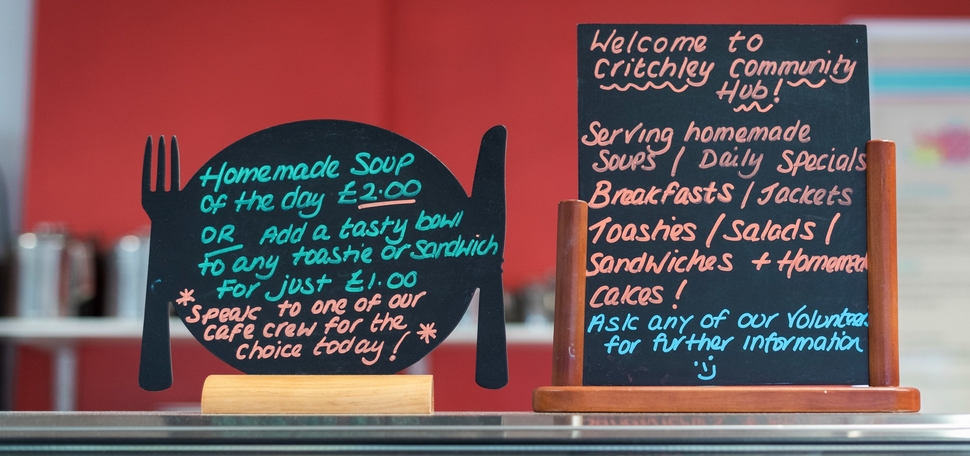 Homemade Soup
of the day £2.00
OR Add a tasty bowl
to any toastie or sandwich
For just £1.00
*Speak to one of our
cafe crew for the
choice today! *
Welcome to
Critchley Community
Hub!
Serving homemade
Soups / Daily Specials
Breakfasts / Jackets
Toasties / Salads /
Sandwiches + Homemad
cakes!
Ask any of our Volunteers
for further information